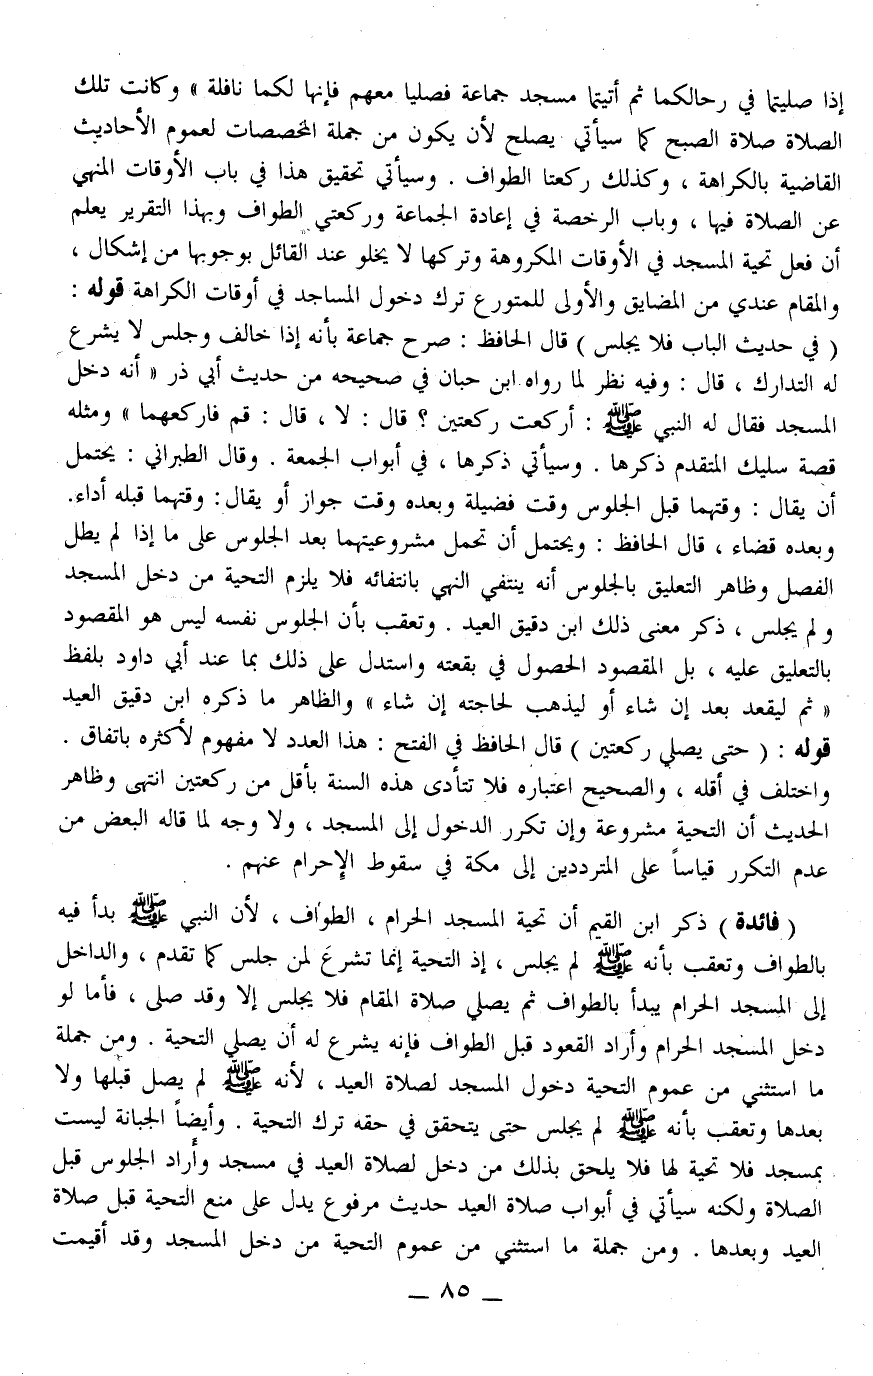 إذا صليتما في رحالكما ثم أتيتما مسجد جماعة فصليا معهم فإنها لكما نافلة » وكانت تلك
الصلاة صلاة الصبح كما سيأتي يصلح لأن يكون من جملة المخصصات لعموم الأحاديث
القاضية بالكراهة ، وكذلك ركعتا الطواف . وسيأتي تحقيق هذا في باب الأوقات المنهي
عن الصلاة فيها ، وباب الرخصة في إعادة الجماعة وركعتي الطواف وبهذا التقرير يعلم
أن فعل تحية المسجد في الأوقات المكروهة وتركها لا يخلو عند القائل بوجوبها من إشكال ،
والمقام عندي من المضايق والأولى للمتورع ترك دخول المساجد في أوقات الكراهة قوله :
( في حديث الباب فلا يجلس ) قال الحافظ : صرح جماعة بأنه إذا خالف وجلس لا يشرع
له التدارك ، قال : وفيه نظر لما رواه ابن حبان في صحيحه من حديث أبي ذر « أنه دخل
المسجد فقال له النبي ﷺ : أركعت ركعتين ؟ قال : لا ، قال : قم فاركعهما » ومثله
قصة سليك المتقدم ذكرها . وسيأتي ذكرها ، في أبواب الجمعة . وقال الطبراني : يحتمل
أن يقال : وقتهما قبل الجلوس وقت فضيلة وبعده وقت جواز أو يقال : وقتهما قبله أداء.
وبعده قضاء ، قال الحافظ : ويحتمل أن تحمل مشروعيتهما بعد الجلوس على ما إذا لم يطل
الفصل وظاهر التعليق بالجلوس أنه ينتفي النهي بانتفائه فلا يلزم التحية من دخل المسجد
ولم يجلس ، ذكر معنى ذلك ابن دقيق العيد . وتعقب بأن الجلوس نفسه ليس هو المقصود
بالتعليق عليه ، بل المقصود الحصول في بقعته واستدل على ذلك بما عند أبي داود بلفظ
« ثم ليقعد بعد إن شاء أو ليذهب لحاجته إن شاء » والظاهر ما ذكره ابن دقيق العيد
قوله : ( حتى يصلي ركعتين ) قال الحافظ في الفتح : هذا العدد لا مفهوم لأكثره باتفاق .
واختلف في أقله ، والصحيح اعتباره فلا تتأدى هذه السنة بأقل من ركعتين انتهى وظاهر
الحديث أن التحية مشروعة وإن تكرر الدخول إلى المسجد ، ولا وجه لما قاله البعض من
عدم التكرر قياساً على المترددين إلى مكة في سقوط الإحرام عنهم .
( فائدة ) ذكر ابن القيم أن تحية المسجد الحرام ، الطواف ، لأن النبي ﷺ بدأ فيه
بالطواف وتعقب بأنه ﷺ لم يجلس ، إذ التحية إنما تشرع لمن جلس كما تقدم ، والداخل
إلى المسجد الحرام يبدأ بالطواف ثم يصلي صلاة المقام فلا يجلس إلا وقد صلى ، فأما لو
دخل المسجد الحرام وأراد القعود قبل الطواف فإنه يشرع له أن يصلي التحية . ومن جملة
ما استثني من عموم التحية دخول المسجد لصلاة العيد ، لأنه ﷺ لم يصل قبلها ولا
بعدها وتعقب بأنه ﷺ لم يجلس حتى يتحقق في حقه ترك التحية . وأيضاً الجبانة ليست
بمسجد فلا تحية لها فلا يلحق بذلك من دخل لصلاة العيد في مسجد وأراد الجلوس قبل
الصلاة ولكنه سيأتي في أبواب صلاة العيد حديث مرفوع يدل على منع التحية قبل صلاة
العيد وبعدها . ومن جملة ما استثني من عموم التحية من دخل المسجد وقد أقيمت
— ٨٥ —